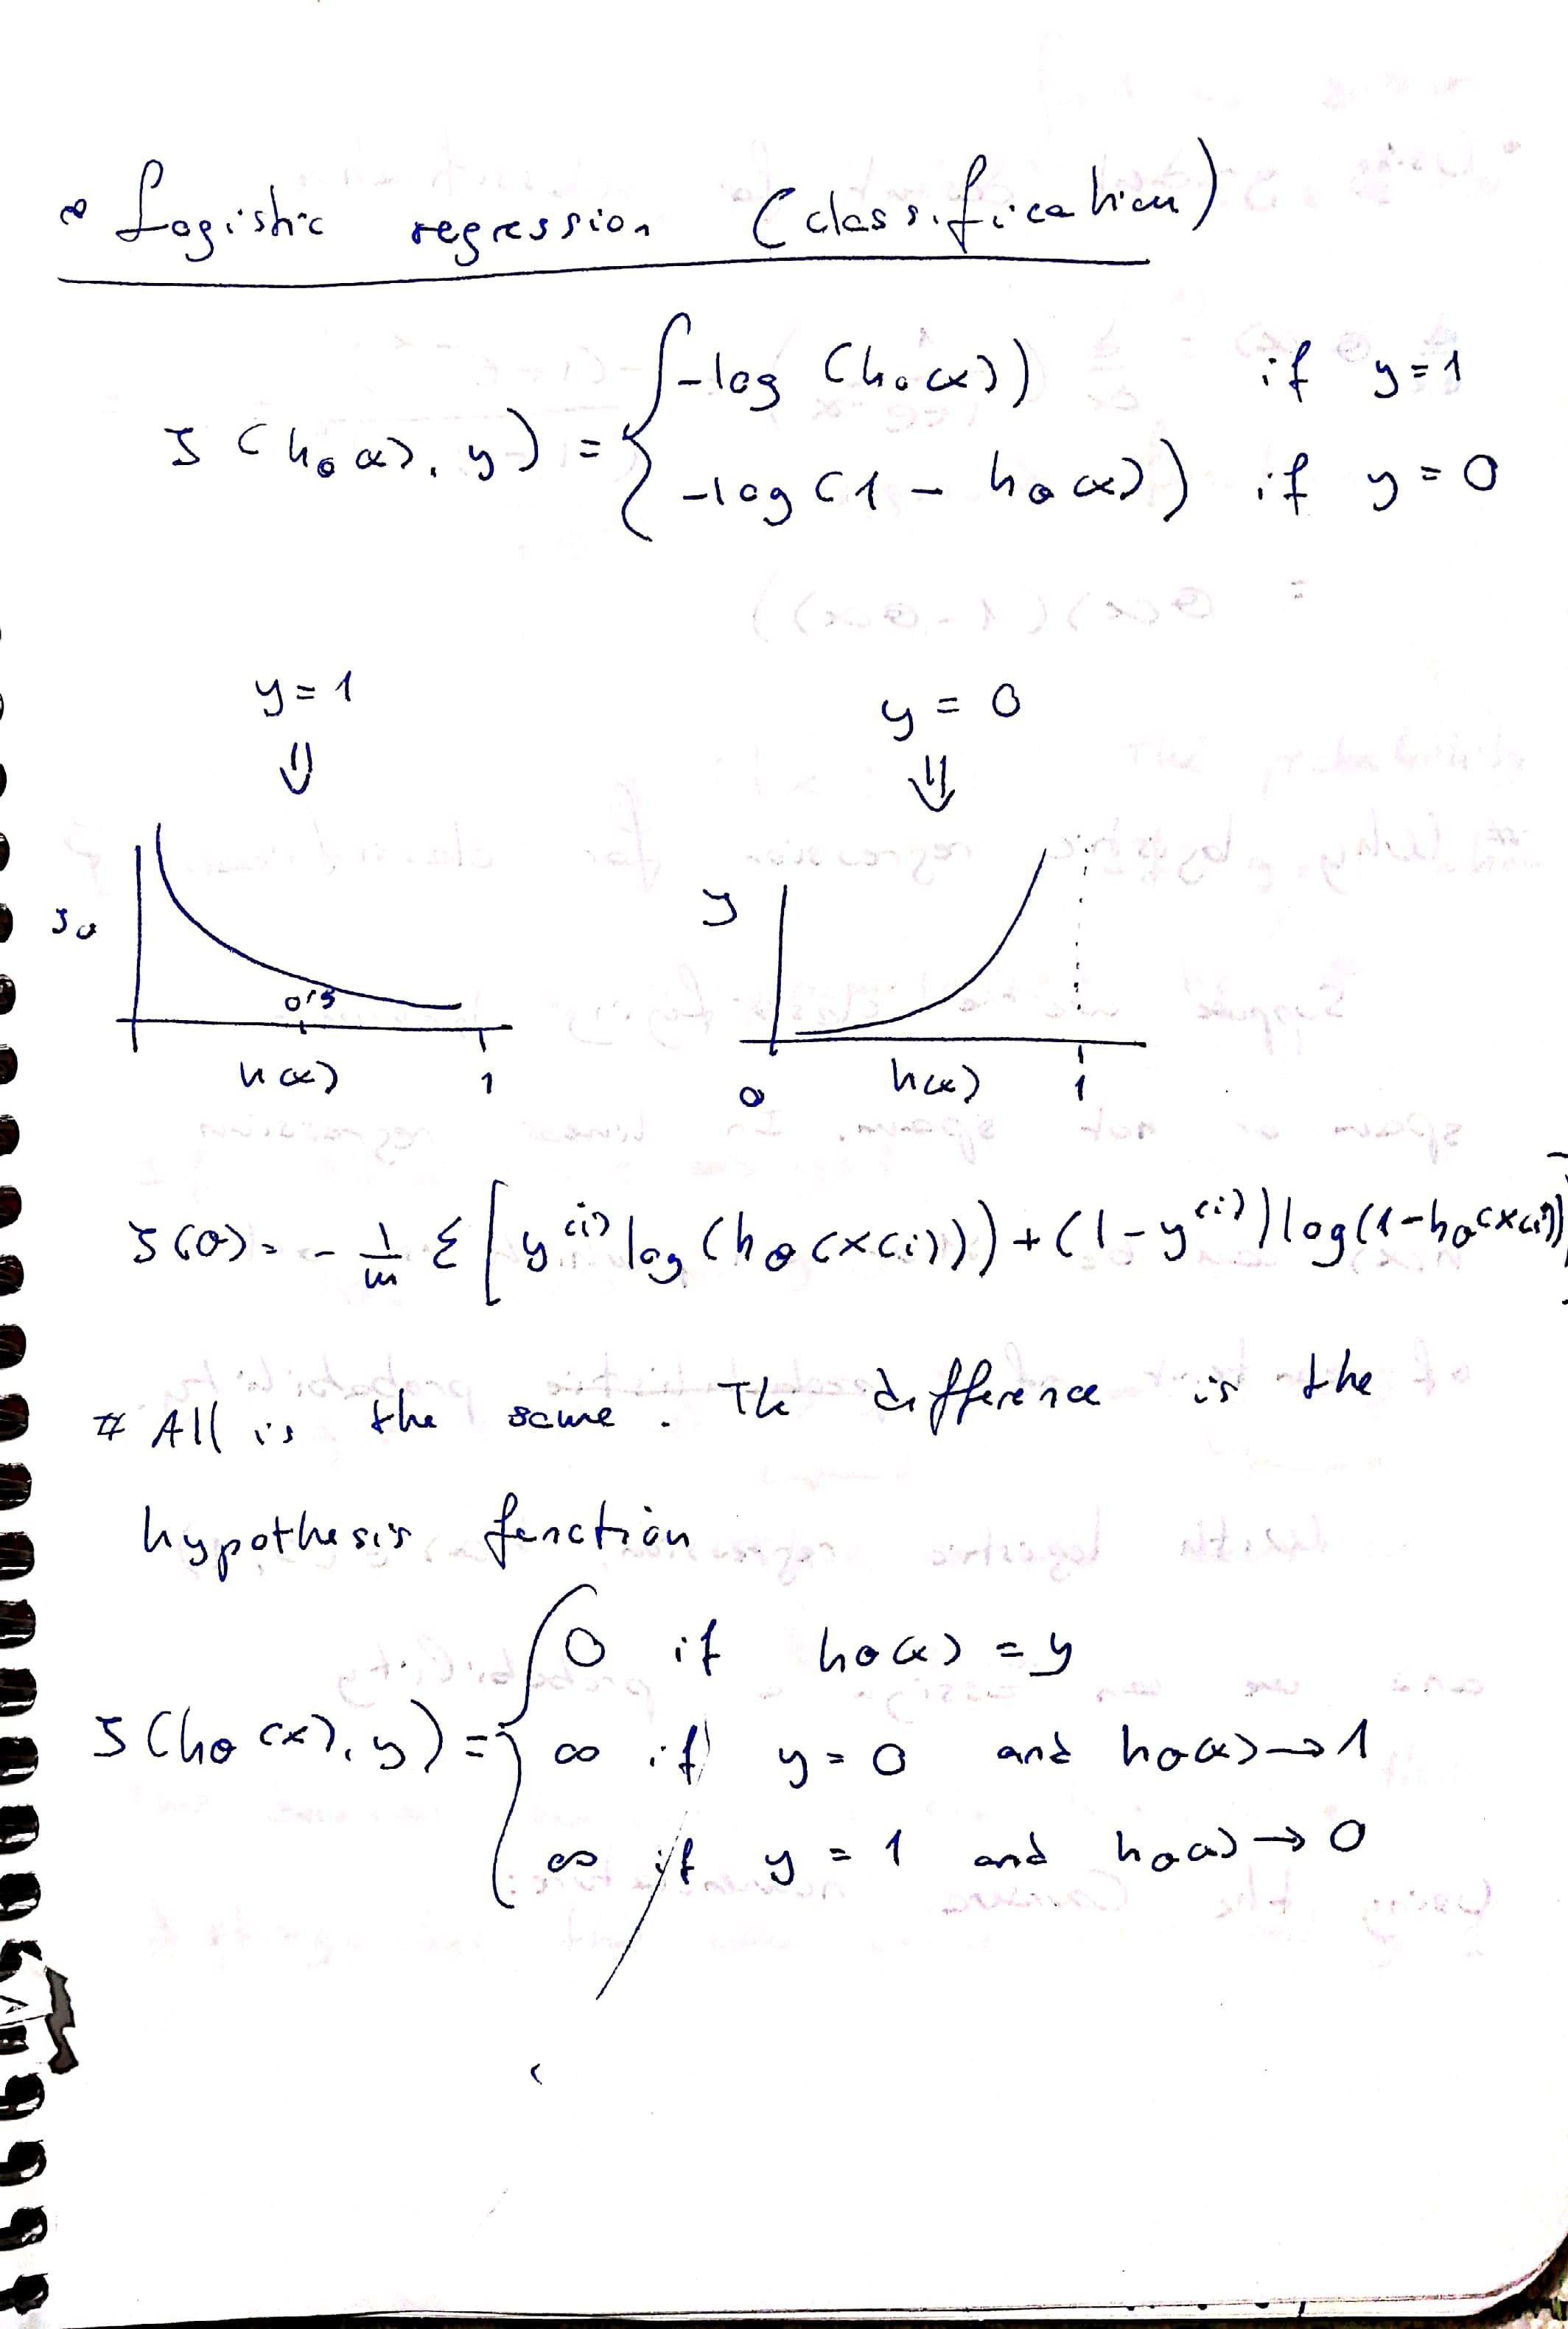 • Logistic regression (classification)
J(hθ(x), y) = { -log(hθ(x)) if y=1
-log(1 - hθ(x)) if y=0
y=1 y=0
⇓ ⇓
Jθ y
0'5
h(x) 1 0 h(x) 1
J(θ) = - 1/m Σ [y(i) log(hθ(x(i))) + (1-y(i)) log(1-hθ(x(i)))]
# All is the same. The difference is the
hypothesis function
J(hθ(x), y) = { 0 if hθ(x) = y
∞ if y=0 and hθ(x)→1
∞ if y=1 and hθ(x)→0